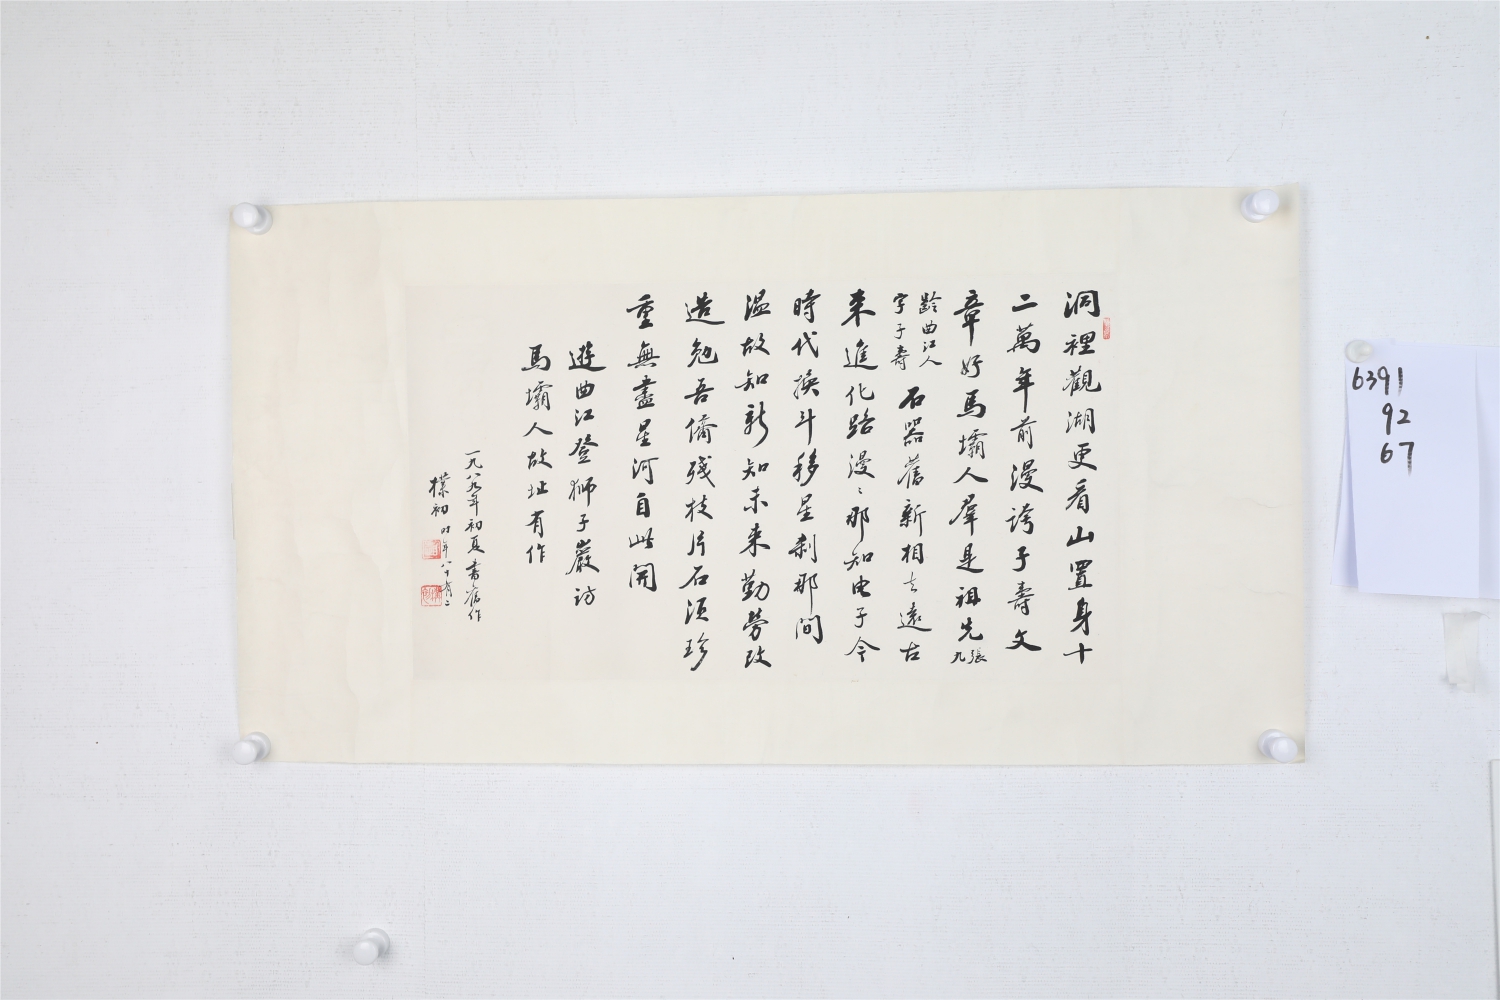 洞裡觀湖更看山置身十
二萬年前漫誇子壽文
章好馬壩人羣是祖先張九
齡曲江人
字子壽
石器舊新相去遠古
來進化路漫〻那知电子今
時代換斗移星刹那间
溫故知新知未來勤勞改
造勉吾儕殘枝片石须珍
重無盡星河自此開
遊曲江登狮子巖訪
馬壩人故址有作
一九八九年初夏書舊作
樸初时年八十有二
6391
92
67